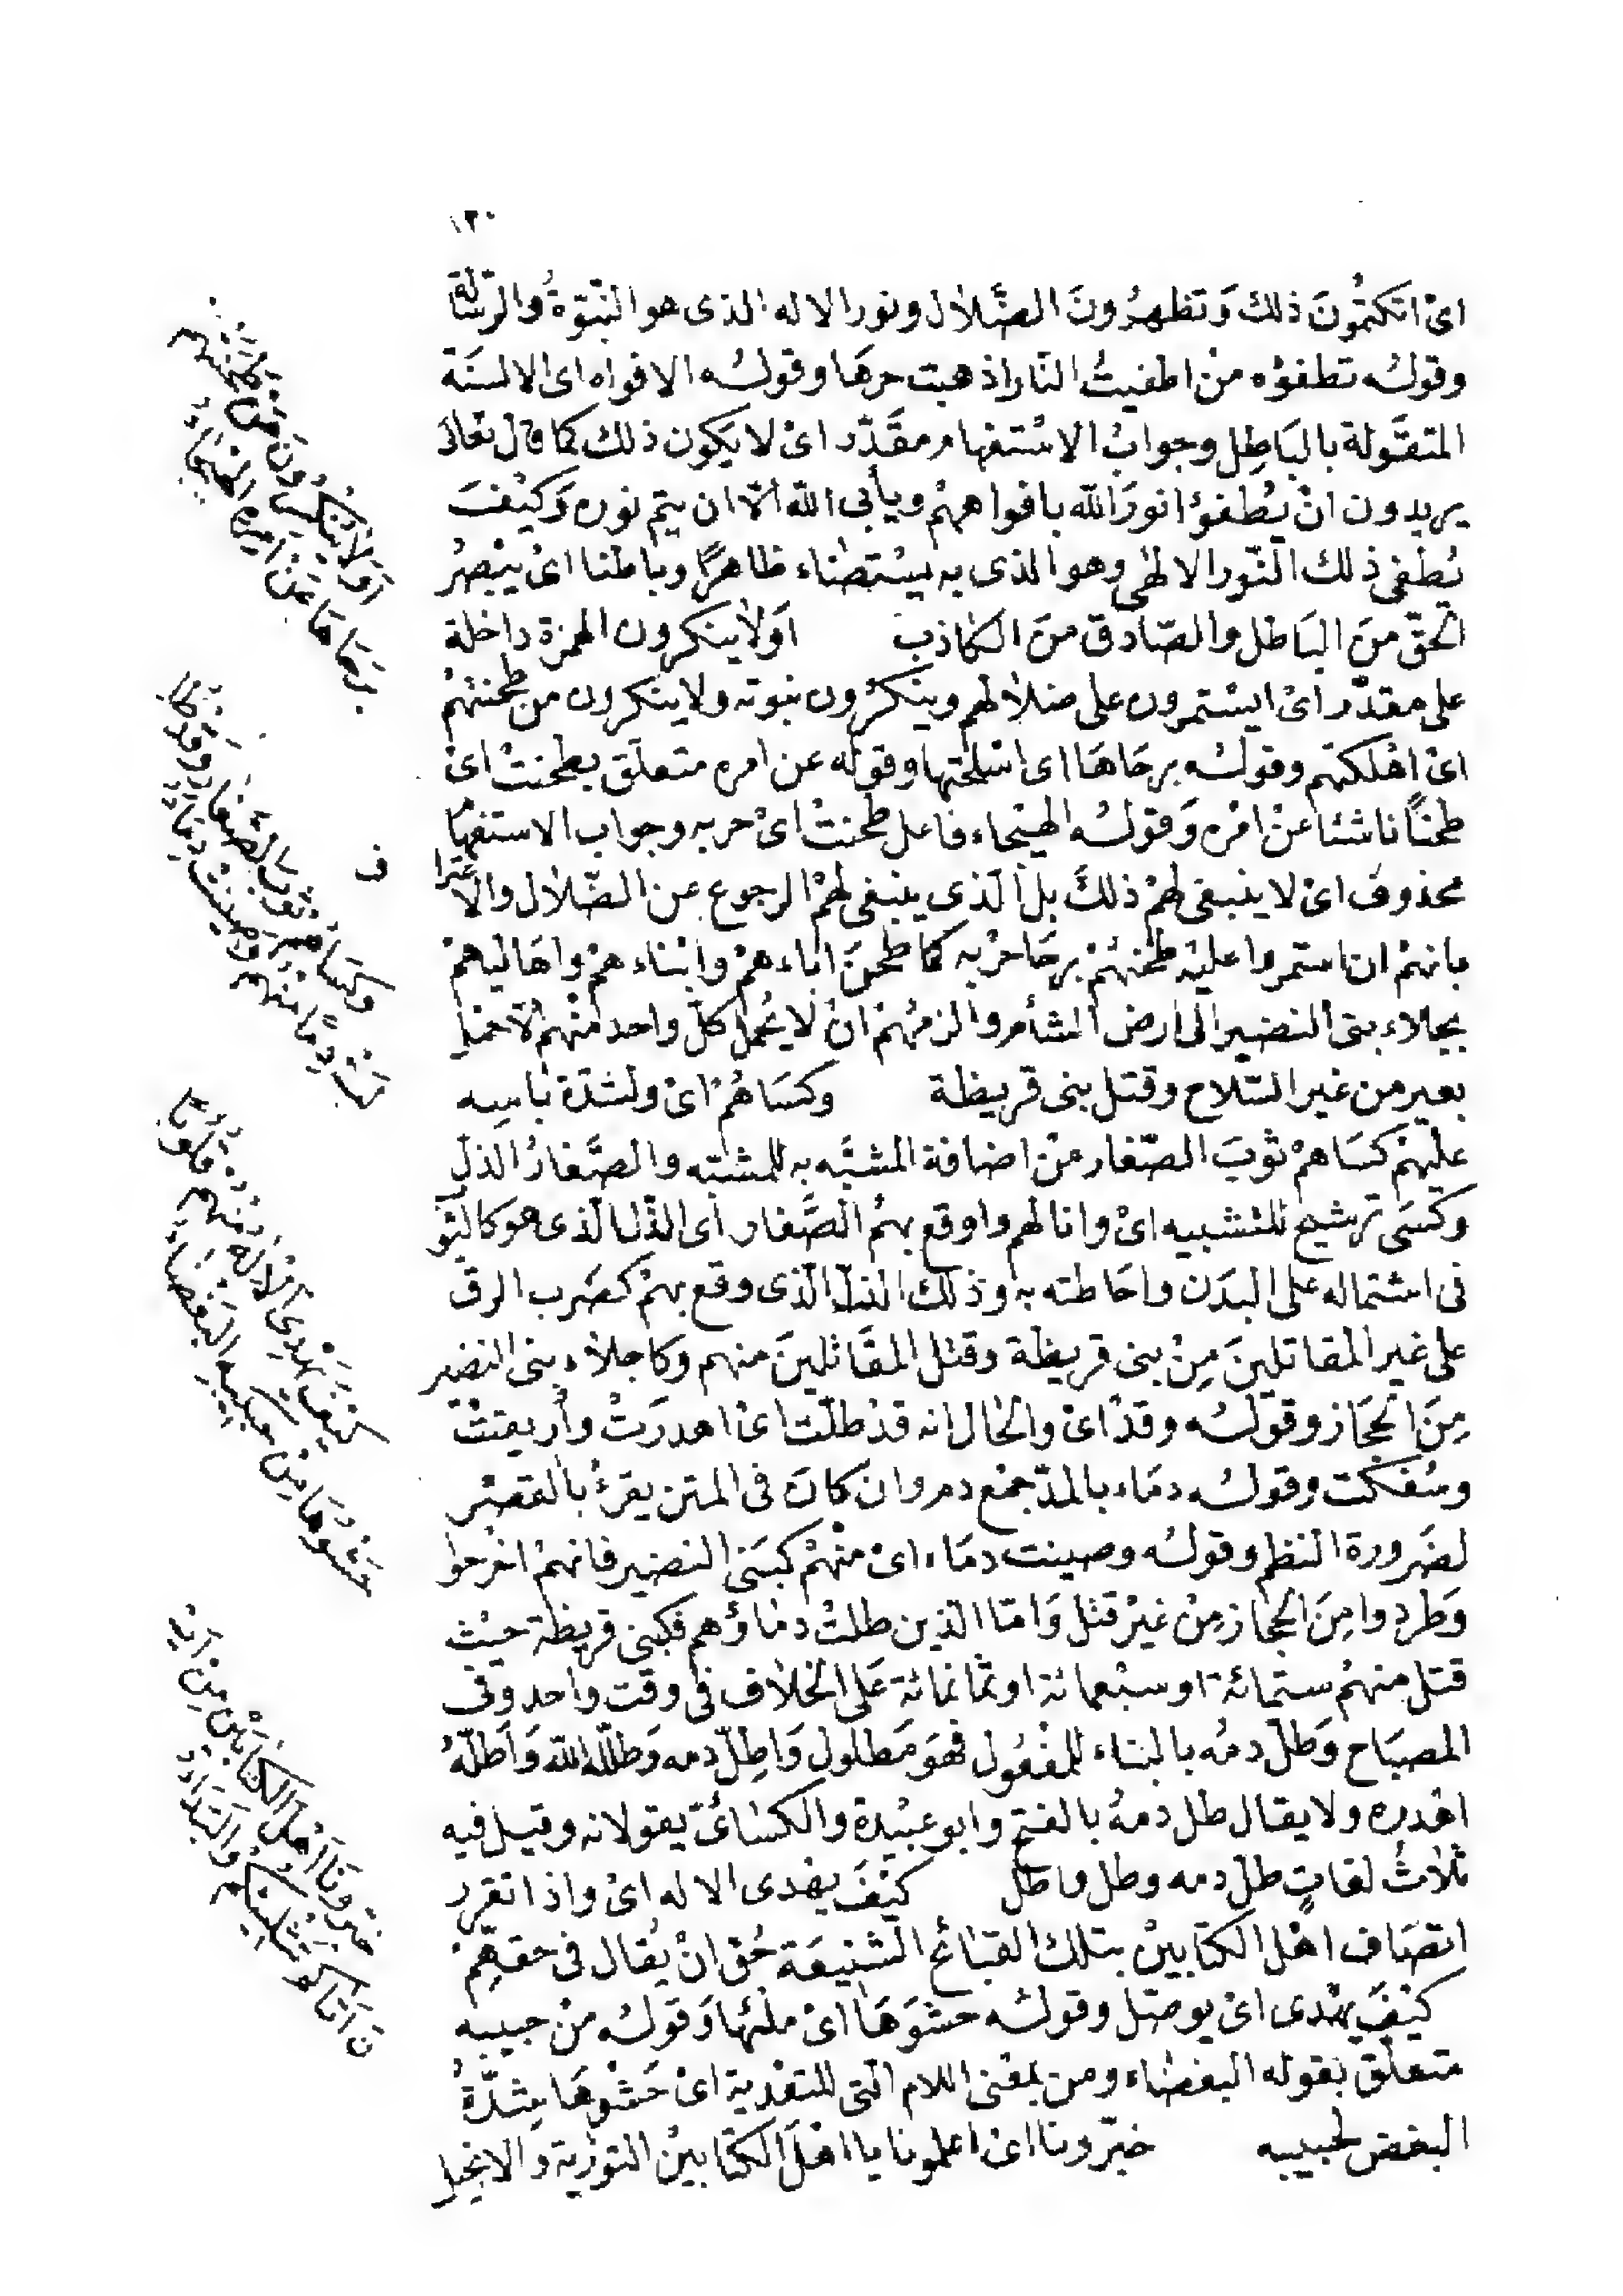 ١٢٠
اى اتكتمُون ذلك وَتظهرُونَ الضَّلال ونور الاله الذى هو النبّوةُ والرسَّالة
وقولُه تطفؤه منْ اطفيتُ النّار اذهبت حرهَا وقولُه الافواه اى الالسنَة
المتقَّولة بالبَاطِل وجوابُ الاسْتفهام مقَدّر اىْ لا يَكون ذلك كما قال تعَالى
يريدون انْ يُطفؤا نورَ الله بافواههمْ ويأبى الله الّا ان يتم نوره وَكيْفَ
يُطفى ذلك النّور الالهٰى وهو الذى به يسْتضٰاء ظاهرًا وباطنا اىْ يبْصرُ
الحقّ منَ البَاطل والصّادق منَ الكاذب اوَلاينكرون الهمزة داخلة
على مقدّر اىْ ايسْتمرون على ضلٰالهم وينكرُون نبوته ولا ينكرون من طحنتهُمْ
اىْ اهْلكتهم وقولُه برحَاهَا اى اسْلحتها وقوله عن امره متعلّق بطحنتْ اىْ
طحنًا ناشئا عنْ امْره وَقولُه الهيْجاء فاعل طحنتْ اىْ حربه وجواب الاستفهَا
محذوف اىْ لا ينبغى لهمْ ذلكَ بل الّذى ينبغى لهمْ الرجوع عن الضّلٰال والاعترا
ف
بانهمْ ان استمروا عليْه طحنهُمْ برحَا حرْبه كما طحنَ اٰباءهمْ وابْناءهمْ واهَاليهمْ
بجلاء بنى النضير الى ارض الشأم والزمهُمْ انْ لا يُحْمل كلّ واحد منْهمْ الّا حمْل
بعير من غير السّلاح وقتل بنى قريظة وكسَاهُمْ اىْ ولشدّة بأسِه
عليْهمْ كسَاهمْ ثوبَ الصّغار منْ اضافة المشبَّه به للمشبّه والصَّغارُ الذلّ
وكسَى ترشيح للتشبيه اىْ وانالهم واوقع بهمُ الصَّغار اى الذّل الّذى هو كالثّو
فى اشتماله على البدَن واحَاطته به وذلك الذلّ الّذى وقع بهمْ كضرب الرقّ
على غير المقاتلينَ مِنْ بنى قريظة وقتل المقَاتلينَ منهم وكاجلٰاء بنى النضير
مِنَ الحجَاز وقولُه وقدْ اىْ والحَال انه قدْ طلّت اىْ اهدرَتْ وأريقتْ
وسُفكت وقولُه دمَاء بالمدّ جمْع دم وان كانَ فى المتن يقرءُ بالقصْر
لضَرورة النظم وقولُه وصينت دمَاء اىْ منْهمْ كبَنى النضير فانهمْ اخرجوا
وَطردوا مِنَ الحجٰاز مِنْ غيْر قتْل وَامّا الّذين طلتْ دمٰاؤهم فكبنى قريظة حيْث
قتل منهمْ ستمائة او سبْعمائة او ثمٰانمائة عَلى الخلٰاف فى وقت واحد وفى
المصبَاح وَطلّ دمُه بالبناء للمفعُول فهوَ مَطلول وَاطلّ دمه وَطلّله الله وَاَطلّهُ
اهْدره ولا يقال طل دمهُ بالفتح وابو عبيْدة والكسٰائىّ يقولانه وقيل فيه
ثلٰاثُ لغاتٍ طل دمه وطل واطل كيْفَ يهْدى الاله اىْ واذا تقرر
اتصَاف اهْل الكتابيْن بتلك القبٰائح الشنيعَة حُق انْ يُقال فى حقهمْ
كيْفَ يهْدى اىْ يوصّل وقولُه حشوَهَا اىْ ملئهَا وَقولُه منْ حبيبه
متعلّق بقوله البغضٰاء ومن بمعْنى اللام الّتى للتعْدية اىْ حَشْوهَا شدّةُ
البغض لحبيبه خبّرونا اىْ اعلمونا يا اهْلَ الكتابيْن التوْرية والانجيل
اَوَلَايُنْكِرُونَ مَنْ طَحَنَتْهُمْ
بِرَحَاهَا عَنْ اَمْرِهِ الْهَيْجَاءُ
وكَسَاهُمْ ثَوْبَ الصَّغَارِ وَقَدْ طُلَّ
لَتْ دِمًا مِنْهُم وَصِينَتْ دِمَاءُ
كَيْفَ يَهْدِى الْاِلهُ مِنْهُمْ قُلُوبًا
حَشْوُهَا مِنْ حَبِيبِهِ الْبَغْضَاءُ
خَبِّرُونَا اَهْلَ الْكِتَابَيْنِ مِنْ اَيْـ
نَ اَتَاكُمْ تَثْلِيثُكُمْ وَالْبَدَاءُ